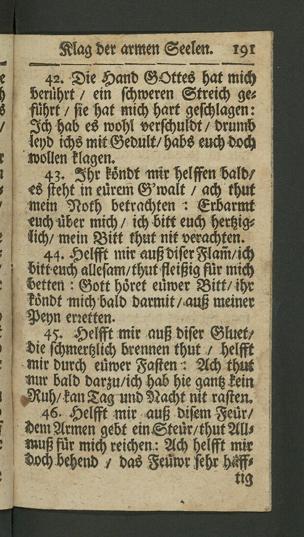 Klag der armen Seelen. 191
42. Die Hand GOttes hat mich
berührt / ein schweren Streich ge-
führt / sie hat mich hart geschlagen:
Ich hab es wohl verschuldt / drumb
leyd ichs mit Gedult / habs euch doch
wollen klagen.
43. Ihr köndt mir helffen bald /
es steht in eürem G'walt / ach thut
mein Noth betrachten : Erbarmt
euch über mich / ich bitt euch hertzig-
lich / mein Bitt thut nit verachten.
44. Helfft mir auß diser Flam / ich
bitt euch allesam / thut fleißig für mich
betten : Gott höret eüwer Bitt / ihr
köndt mich bald darmit / auß meiner
Peyn erretten.
45. Helfft mir auß diser Gluet /
die schmertzlich brennen thut / helfft
mir durch eüwer Fasten : Ach thut
nur bald darzu / ich hab hie gantz kein
Ruh / kan Tag und Nacht nit rasten.
46. Helfft mir auß disem Feür /
dem Armen gebt ein Steür / thut All-
muß für mich reichen: Ach helfft mir
doch behend / das Feüwr sehr häff-
tig